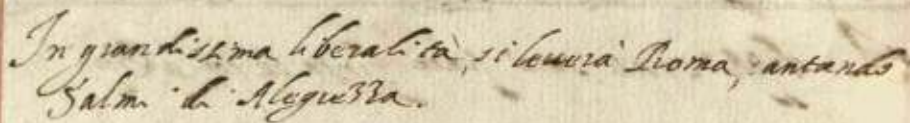 In grandissima liberalità, si leuerà Roma, cantando
Salmi di Alegrezza.